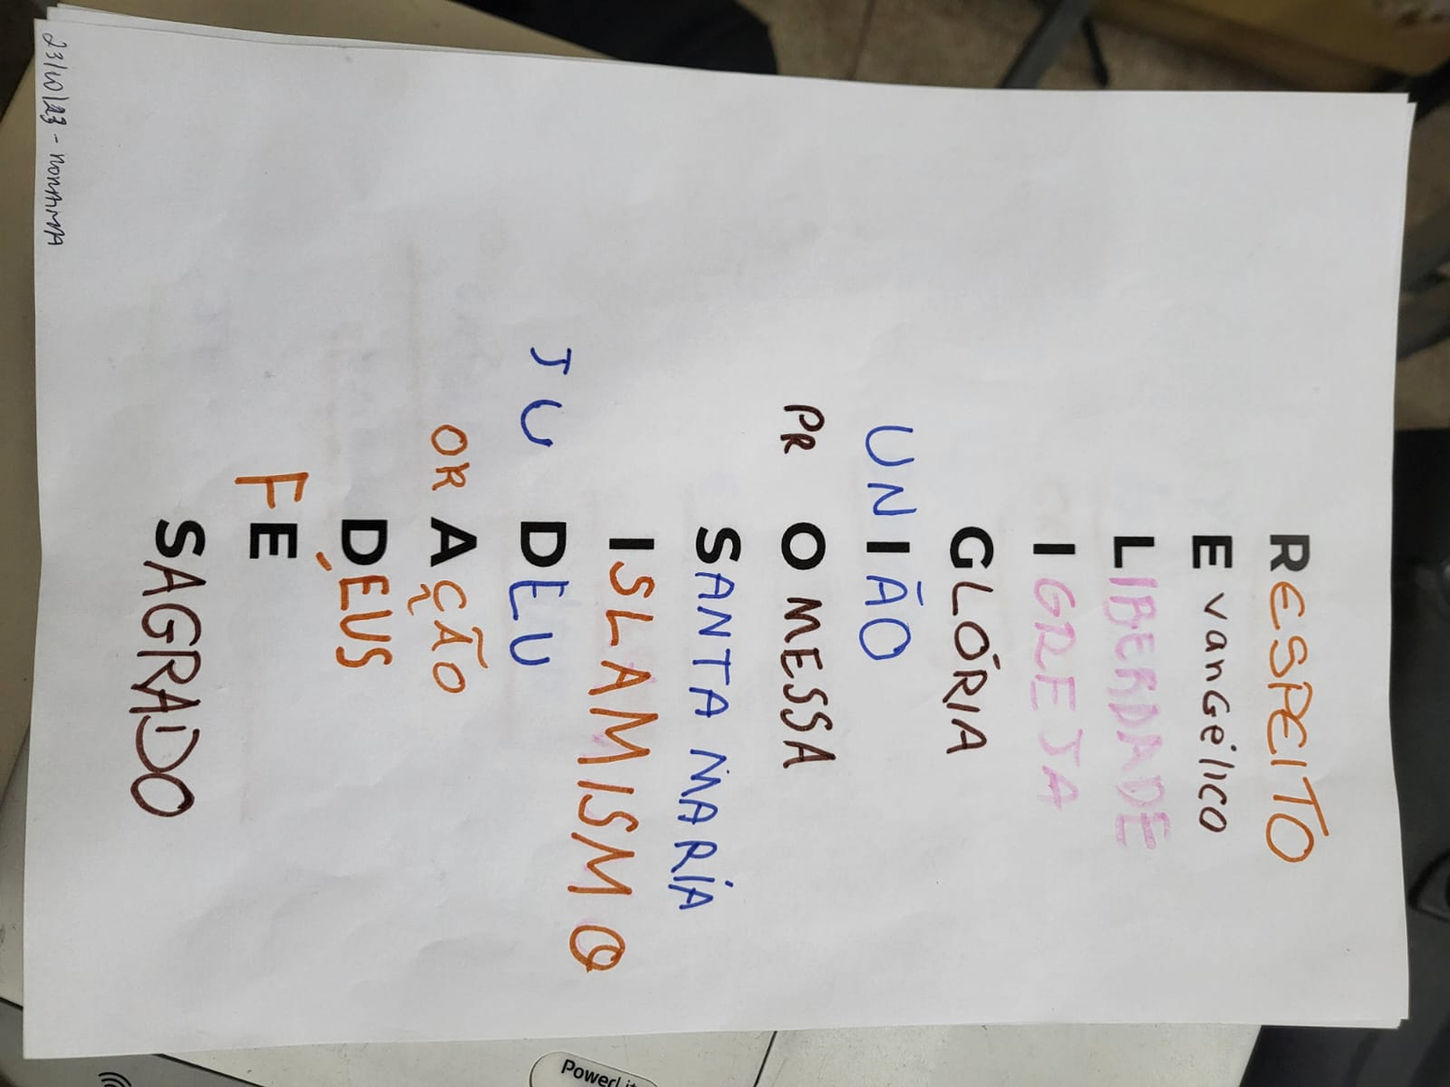 RESPEITO
EvanGélico
LIBERDADE
IGREJA
GLÓRIA
UNIÃO
PROMESSA
SANTA MARÍA
ISLAMISMO
JUDEU
ORAÇÃO
DEUS
FÉ
SAGRADO
23/10/23 -
PowerLit